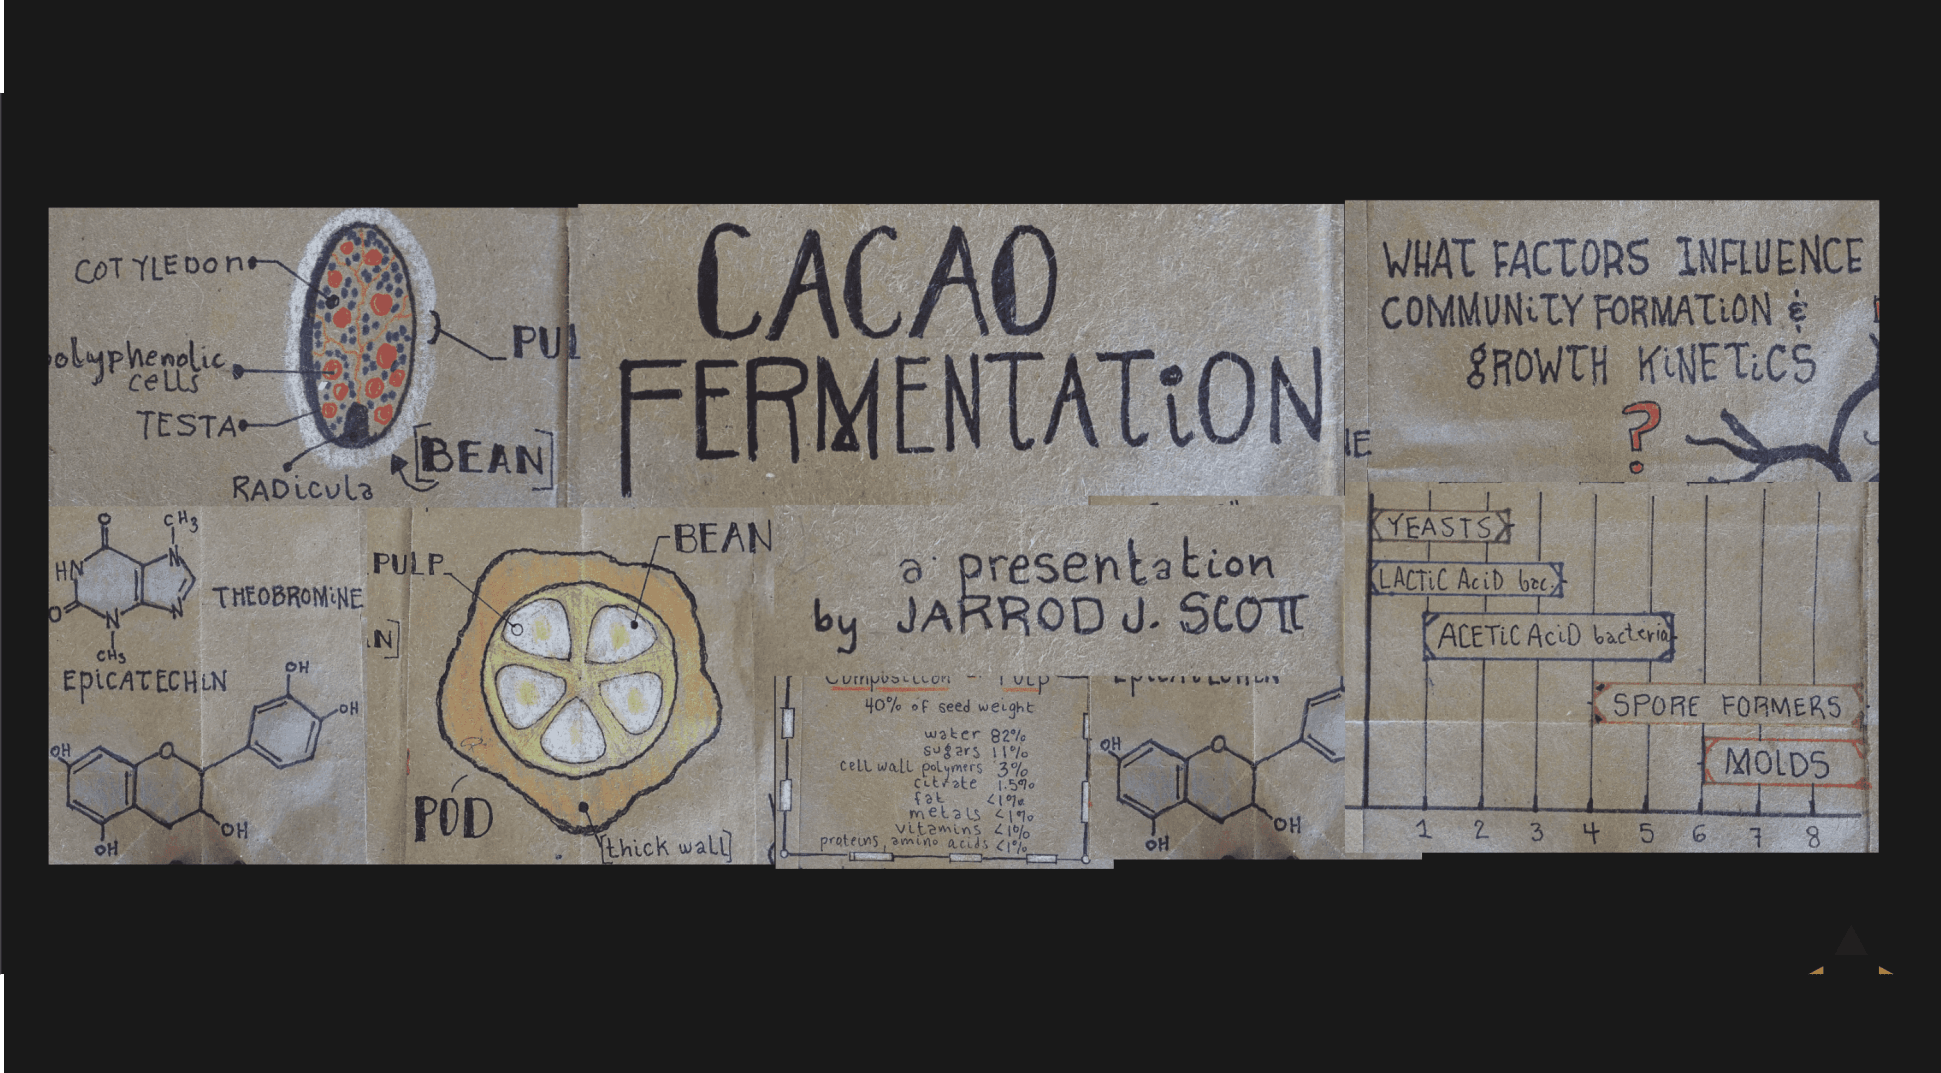 COTYLEDON
polyphenolic
cells
TESTA
RADicula
[BEAN]
CACAO
FERMENTATiON
WHAT FACTORS INFLUENCE
COMMUNiTY FORMATiON &
gROWTH KiNETiCS
?
CH3
HN
N
N
N
O
O
CH3
THEOBROMiNE
EPiCATECHiN
OH
OH
OH
O
OH
OH
PULP
BEAN
POD
[thick wall]
a presentation
by JARROD J. SCOTT
Composition - Pulp
40% of seed weight
water 82%
sugars 11%
cell wall polymers 3%
citrate 1.5%
fat <1%
metals <1%
vitamins <1%
proteins, amino acids <1%
OH
O
OH
OH
YEASTS
LACTiC AciD bac.
ACETiC AciD bacteria
SPORE FORMERS
MOLDS
1 2 3 4 5 6 7 8